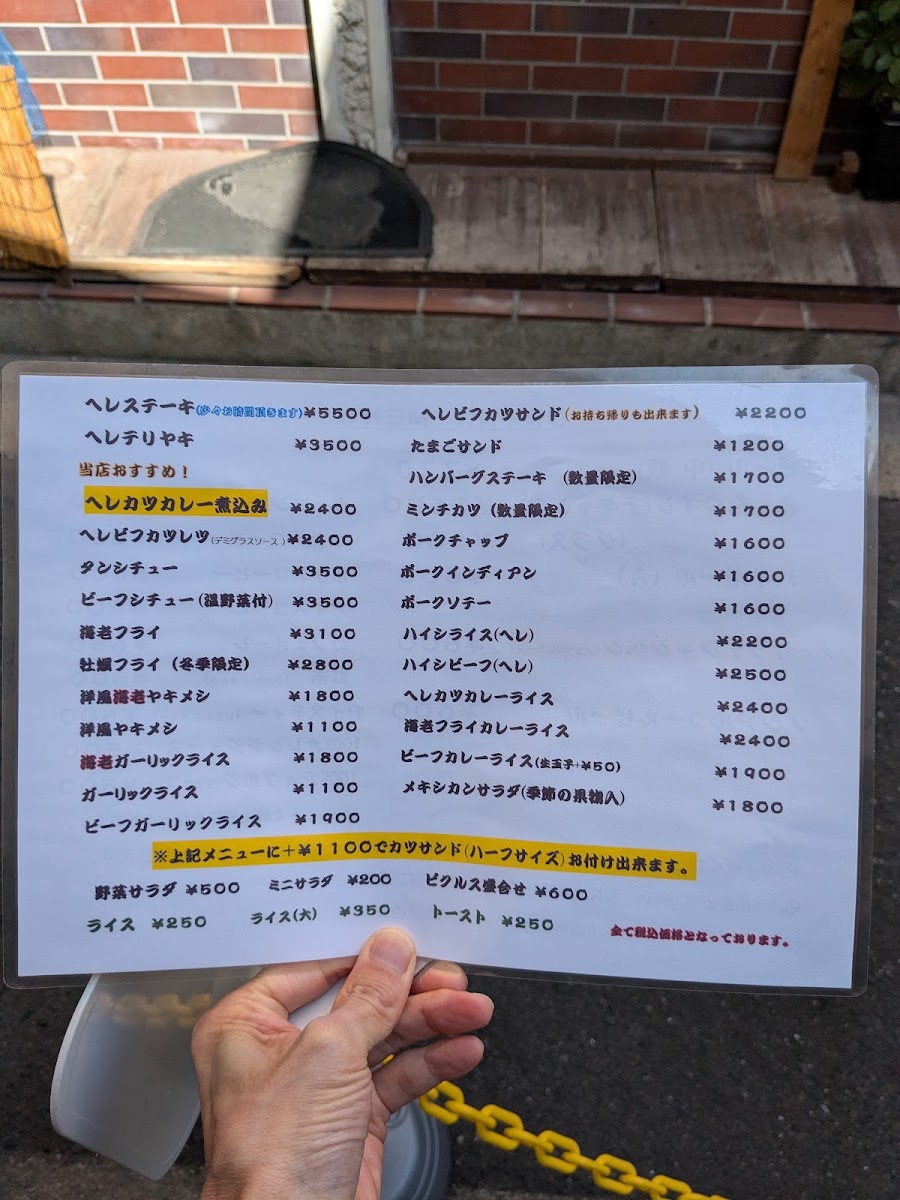 ヘレステーキ(少々お時間頂きます)¥5500
ヘレテリヤキ ¥3500
当店おすすめ!
ヘレカツカレー煮込み ¥2400
ヘレビフカツレツ(デミグラスソース)¥2400
タンシチュー ¥3500
ビーフシチュー(温野菜付) ¥3500
海老フライ ¥3100
牡蠣フライ(冬季限定) ¥2800
洋風海老ヤキメシ ¥1800
洋風ヤキメシ ¥1100
海老ガーリックライス ¥1800
ガーリックライス ¥1100
ビーフガーリックライス ¥1900
ヘレビフカツサンド(お持ち帰りも出来ます) ¥2200
たまごサンド ¥1200
ハンバーグステーキ (数量限定) ¥1700
ミンチカツ(数量限定) ¥1700
ポークチャップ ¥1600
ポークインディアン ¥1600
ポークソテー ¥1600
ハイシライス(ヘレ) ¥2200
ハイシビーフ(ヘレ) ¥2500
ヘレカツカレーライス ¥2400
海老フライカレーライス ¥2400
ビーフカレーライス(生玉子+¥50) ¥1900
メキシカンサラダ(季節の果物入) ¥1800
※上記メニューに+¥1100でカツサンド(ハーフサイズ)お付け出来ます。
野菜サラダ ¥500 ミニサラダ ¥200 ピクルス盛合せ ¥600
ライス ¥250 ライス(大) ¥350 トースト ¥250
全て税込価格となっております。